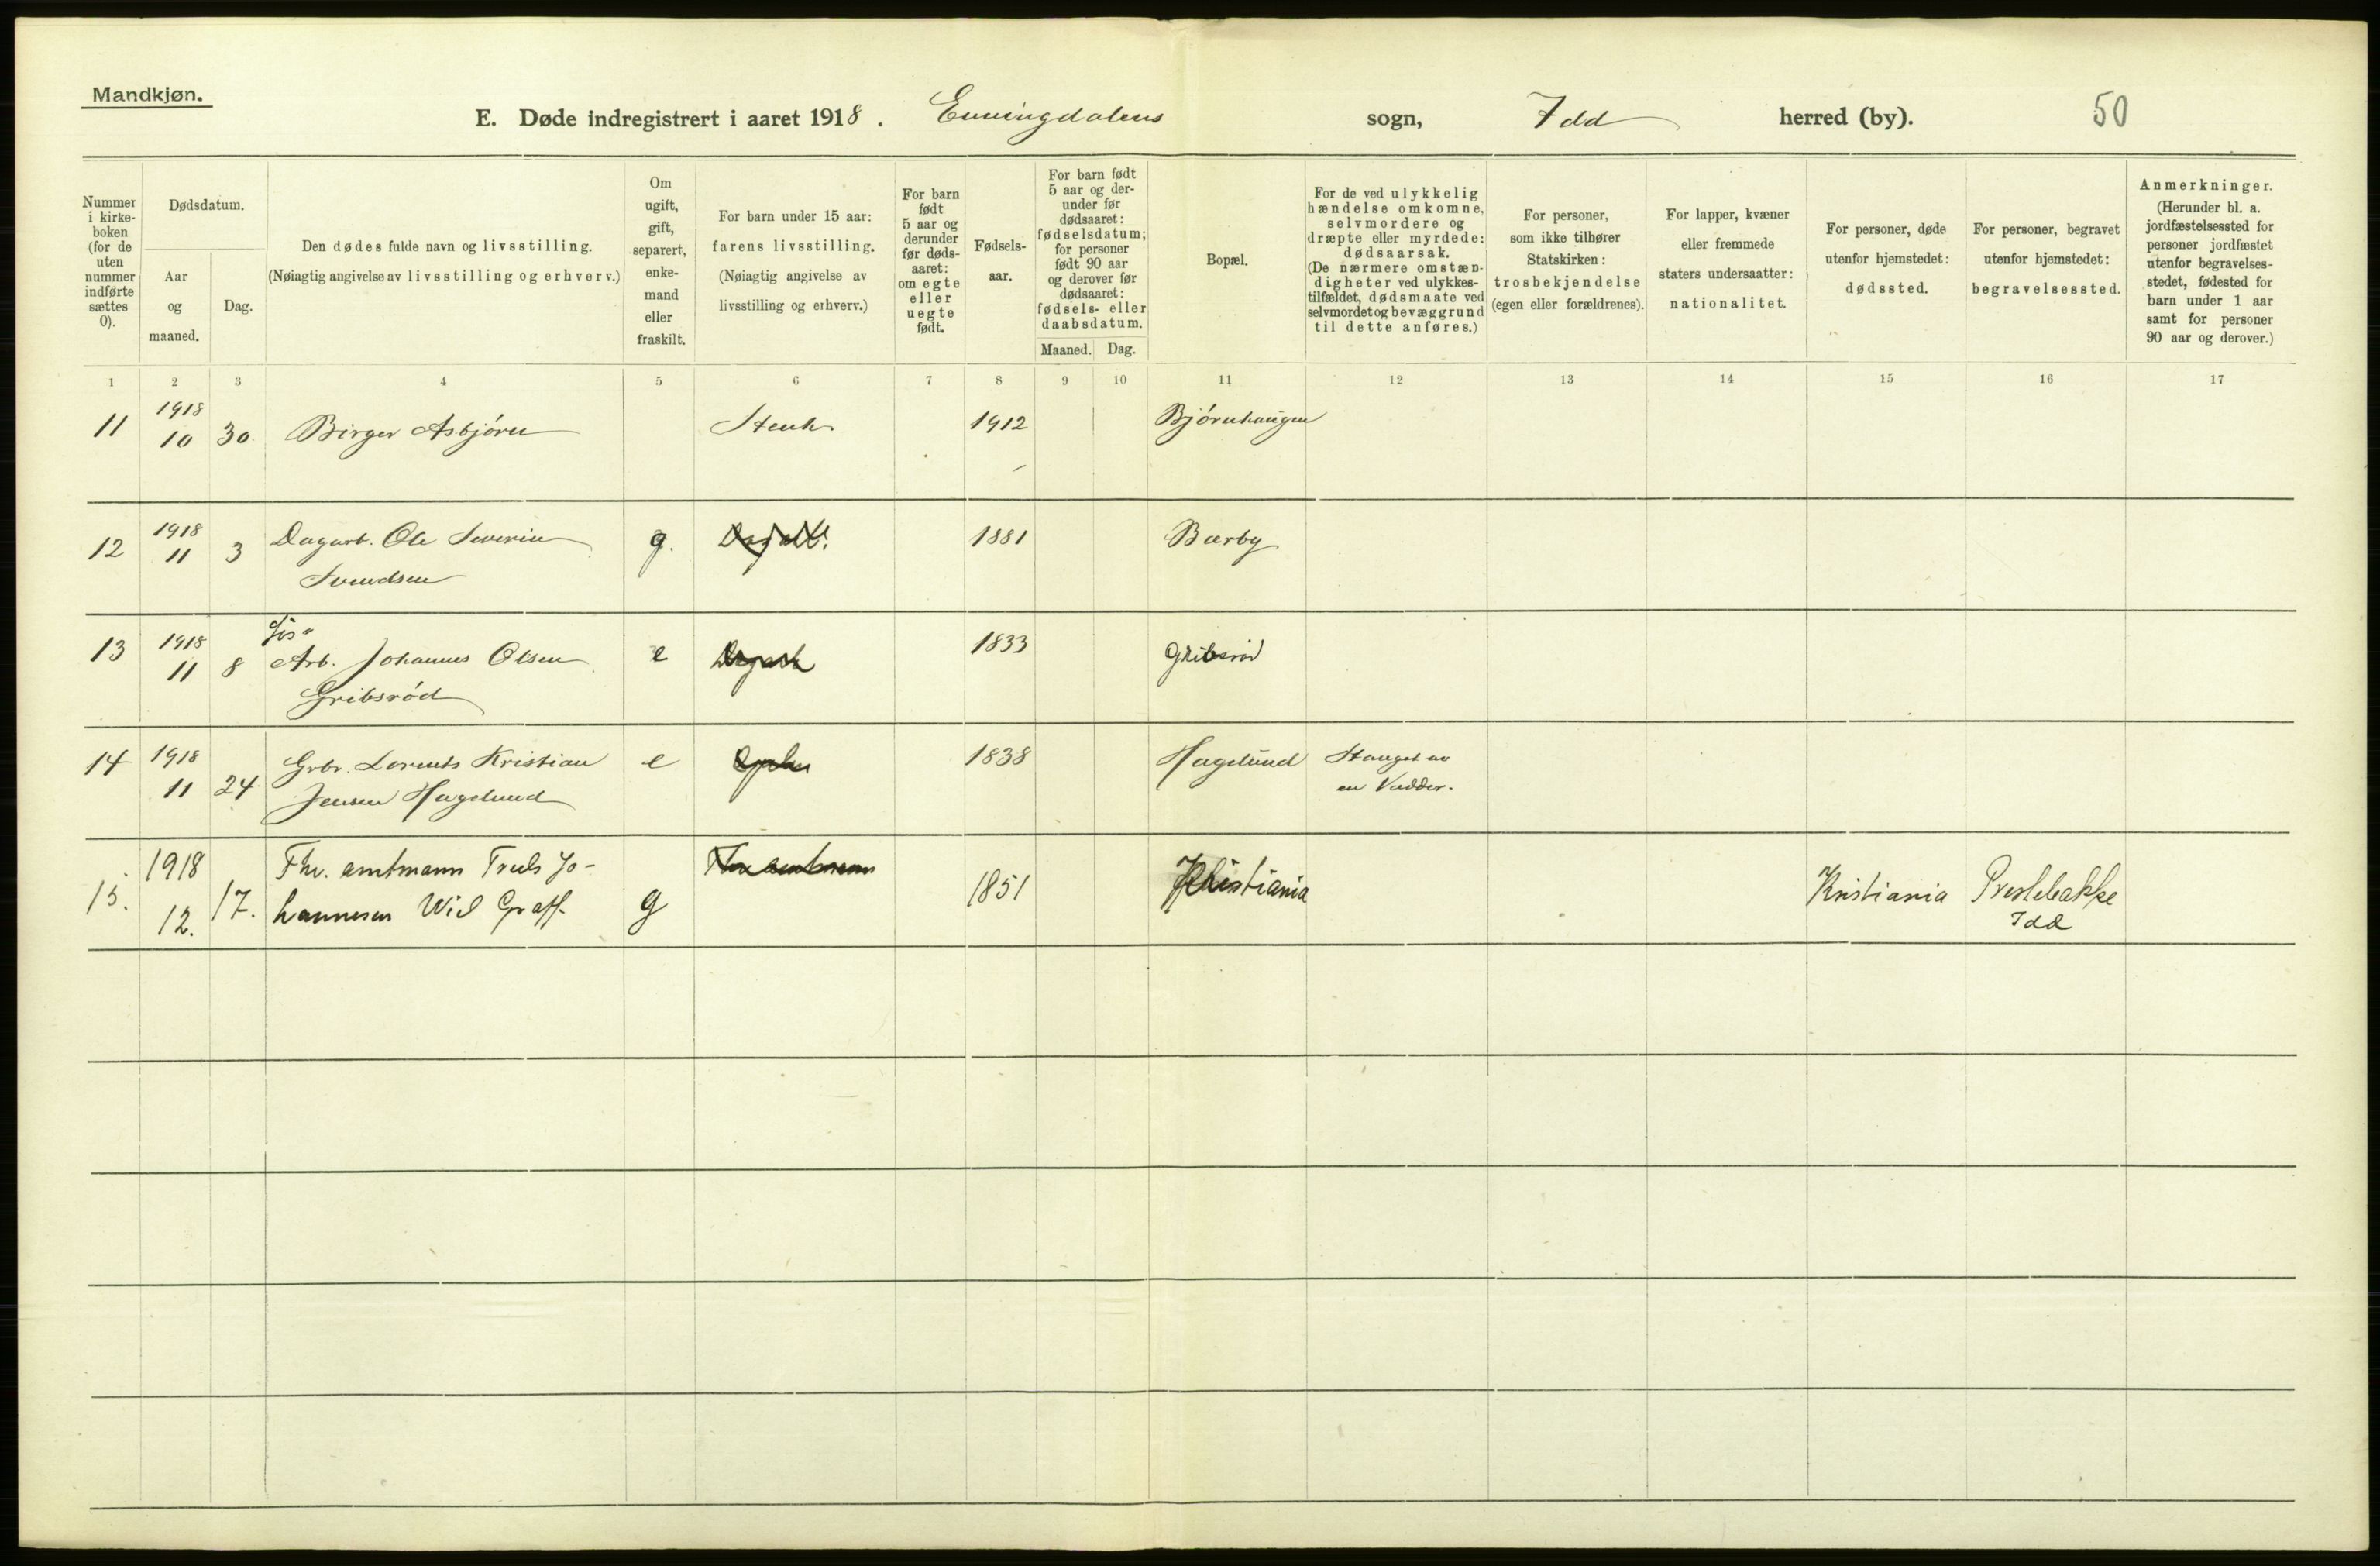 Mandkjøn.
E. Døde indregistrert i aaret 1918. Enningdalens sogn, Idd herred (by). 50
Nummer i kirke-boken (for de uten nummer indførte sættes 0).
Dødsdatum.
Aar og maaned.
Dag.
Den dødes fulde navn og livsstilling.
(Nøiagtig angivelse av livsstilling og erhverv.)
Om ugift, gift, separert, enke-mand eller fraskilt.
For barn under 15 aar: farens livsstilling.
(Nøiagtig angivelse av livsstilling og erhverv.)
For barn født 5 aar og derunder før døds-aaret: om egte eller uegte født.
Fødsels-aar.
For barn født 5 aar og der-under før dødsaaret: fødselsdatum; for personer født 90 aar og derover før dødsaaret: fødsels- eller daabsdatum.
Maaned. Dag.
Bopæl.
For de ved ulykkelig hændelse omkomne, selvmordere og dræpte eller myrdede: dødsaarsak.
(De nærmere omstæn-digheter ved ulykkes-tilfældet, dødsmaate ved selvmordet og bevæggrund til dette anføres.)
For personer, som ikke tilhører Statskirken: trosbekjendelse (egen eller forældrenes).
For lapper, kvæner eller fremmede staters undersaatter: nationalitet.
For personer, døde utenfor hjemstedet: dødssted.
For personer, begravet utenfor hjemstedet: begravelsessted.
Anmerkninger.
(Herunder bl. a. jordfæstelsessted for personer jordfæstet utenfor begravelses-stedet, fødested for barn under 1 aar samt for personer 90 aar og derover.)
1 2 3 4 5 6 7 8 9 10 11 12 13 14 15 16 17
11 1918 10 30 Birger Asbjørn Stenh. 1912 Bjørnhaugen
12 1918 11 3 Dagarb. Ole Severin Svendsen g. 1881 Bærby
13 1918 11 8 Arb. Johannes Olsen Gribsrød e 1833 Gribsrød
14 1918 11 24 Grbr. Lorents Kristian Jensen Hagelund e 1838 Hagelund Stanget av en Vædder.
15. 1918 12. 17. Fhv. amtmann Truls Johannesen Wiel Graff g 1851 Kristiania Kristiania Prestebakke Idd